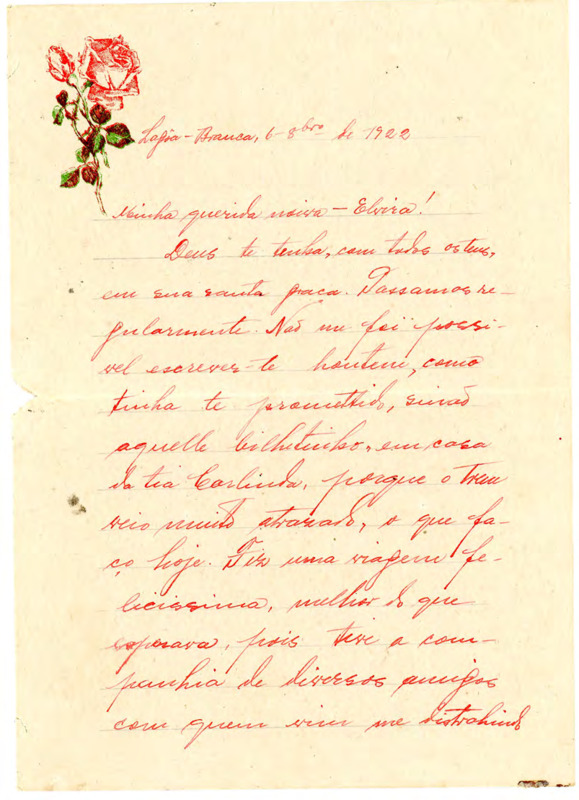 Lagôa-Branca, 6 - 8bro de 1922
Minha querida noiva - Elvira!
Deus te tenha, com todos os teus,
em sua santa graça. Passamos re-
gularmente. Não me foi possi-
vel escrever-te hontem, como
tinha te promettido, sinão
aquelle bilhetinho, em casa
da tia Carlinda, porque o trem
veio muito atrazado, o que fa-
ço hoje. Fiz uma viagem fe-
licissima, melhor do que
esperava, pois tive a com-
panhia de diversos amigos
com quem vim me distrahindo